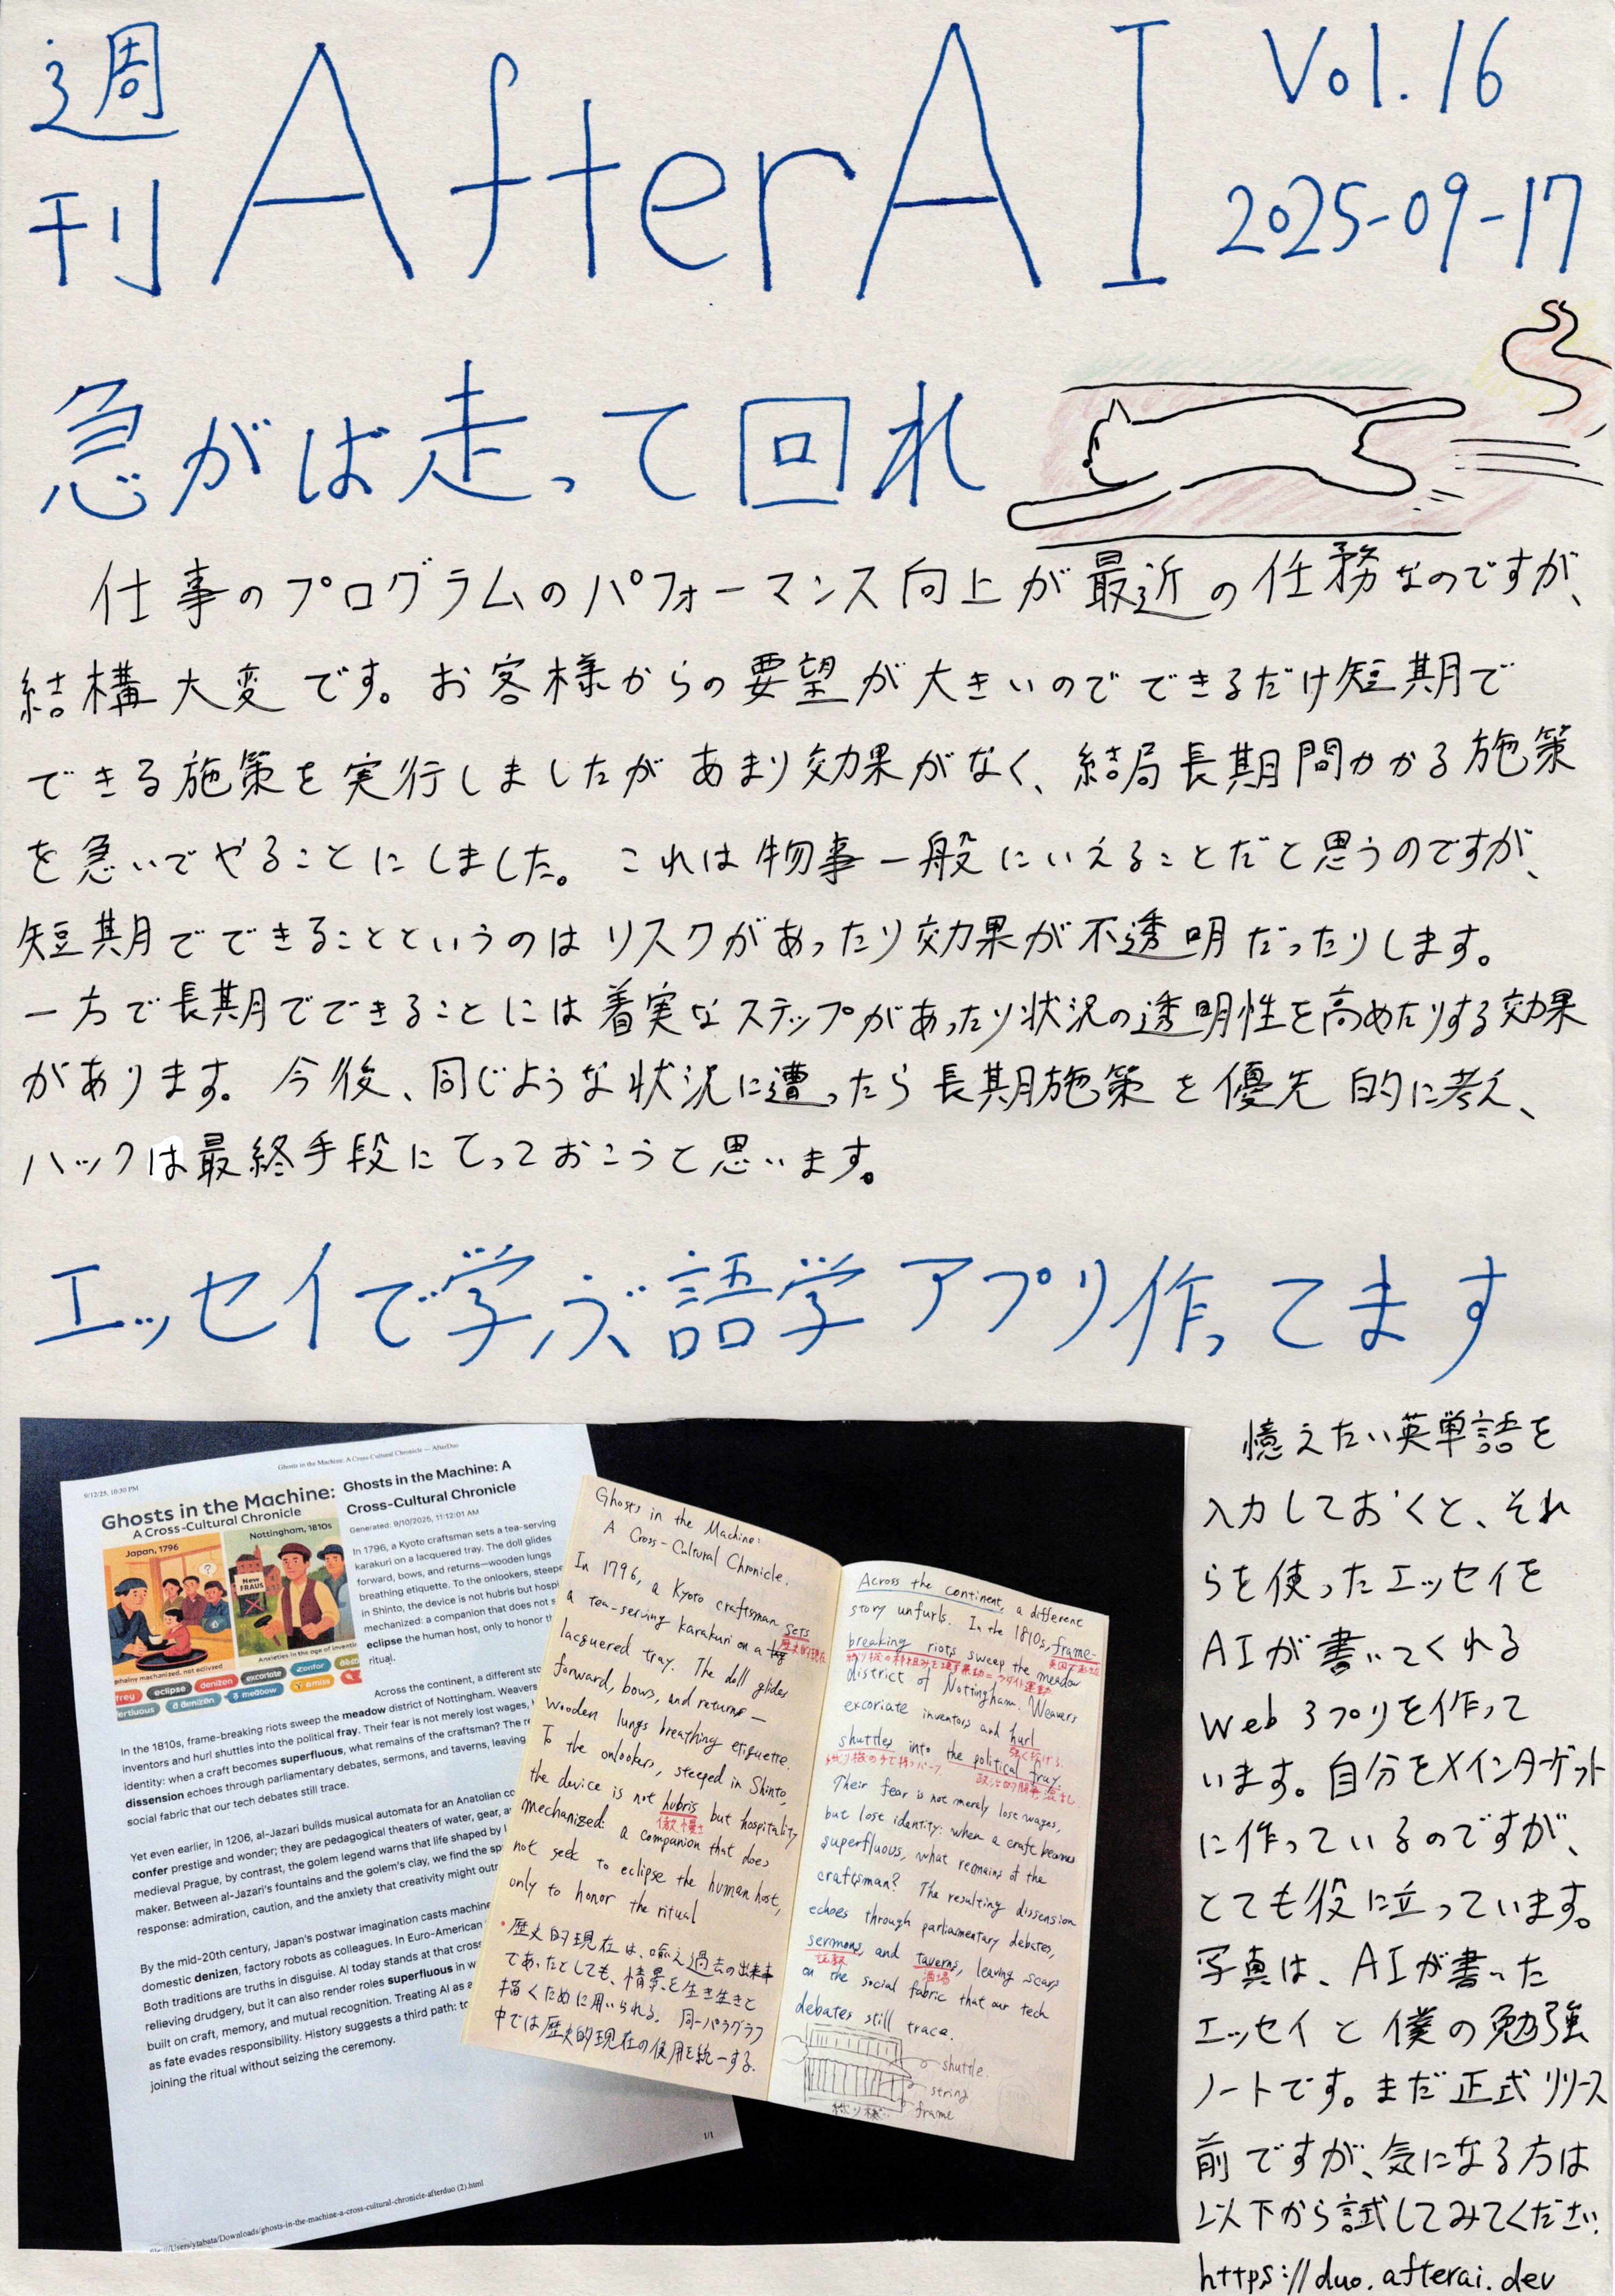 週刊 AfterAI Vol.16
2025-09-17
急がば走って回れ
仕事のプログラムのパフォーマンス向上が最近の任務なのですが、
結構大変です。お客様からの要望が大きいのでできるだけ短期で
できる施策を実行しましたがあまり効果がなく、結局長期間かかる施策
を急いでやることにしました。これは物事一般にいえることだと思うのですが、
短期でできることというのはリスクがあったり効果が不透明だったりします。
一方で長期でできることには着実なステップがあったり状況の透明性を高めたりする効果
があります。今後、同じような状況に遭ったら長期施策を優先的に考え、
ハックは最終手段にとっておこうと思います。
エッセイで学ぶ語学アプリ作ってます
9/12/25, 10:30 PM
Ghosts in the Machine: A Cross-Cultural Chronicle — AfterDuo
Ghosts in the Machine:
A Cross-Cultural Chronicle
Japan, 1796
Nottingham, 1810s
New
FRAUS
?
Anxieties in the age of
frey
eclipse
denizen
excoriate
confor
denizen
meadow
amiss
Ghosts in the Machine: A
Cross-Cultural Chronicle
Generated: 9/10/2025, 11:12:01 AM
In 1796, a Kyoto craftsman sets a tea-serving
karakuri on a lacquered tray. The doll glides
forward, bows, and returns—wooden lungs
breathing etiquette. To the onlookers,
in Shinto, the device is not hubris but
mechanized: a companion that does not
eclipse the human host, only to honor
ritual.
Across the continent, a different
In the 1810s, frame-breaking riots sweep the meadow district of Nottingham. Weavers
inventors and hurl shuttles into the political fray. Their fear is not merely lost wages,
identity: when a craft becomes superfluous, what remains of the craftsman? The
dissension echoes through parliamentary debates, sermons, and taverns, leaving
social fabric that our tech debates still trace.
Yet even earlier, in 1206, al-Jazari builds musical automata for an Anatolian
confer prestige and wonder; they are pedagogical theaters of water, gear,
medieval Prague, by contrast, the golem legend warns that life shaped by
maker. Between al-Jazari's fountains and the golem's clay, we find the
response: admiration, caution, and the anxiety that creativity might
By the mid-20th century, Japan's postwar imagination casts
domestic denizen, factory robots as colleagues. In Euro-American
Both traditions are truths in disguise. AI today stands at that
relieving drudgery, but it can also render roles superfluous in
built on craft, memory, and mutual recognition. Treating AI as
as fate evades responsibility. History suggests a third path:
joining the ritual without seizing the ceremony.
1/1
file:///Users/ytabata/Downloads/ghosts-in-the-machine-a-cross-cultural-chronicle-afterduo (2).html
Ghosts in the Machine:
A Cross-Cultural Chronicle.
In 1796, a Kyoto craftsman sets
歴史的現在
a tea-serving karakuri on a
lacquered tray. The doll glides
forward, bows, and returns—
wooden lungs breathing etiquette.
To the onlookers, steeped in Shinto,
the device is not hubris but hospitality
傲慢さ
mechanized: a companion that does
not seek to eclipse the human host,
only to honor the ritual
・歴史的現在は、喩え過去の出来事
であったとしても、情景を生き生きと
描くために用いられる。同一パラグラフ
中では歴史的現在の使用を統一する.
Across the continent, a different
story unfurls. In the 1810s, frame-
breaking riots sweep the meadow
district of Nottingham. Weavers
excoriate inventors and hurl
shuttles into the political fray.
Their fear is not merely lost wages,
but lose identity: when a craft becomes
superfluous, what remains of the
craftsman? The resulting dissension
echoes through parliamentary debates,
sermons, and taverns, leaving scars
説教
酒場
on the social fabric that our tech
debates still trace.
shuttle.
string
frame
織り機
憶えたい英単語を
入力しておくと、それ
らを使ったエッセイを
AIが書いてくれる
Webアプリを作って
います。自分をメインターゲット
に作っているのですが、
とても役に立っています。
写真は、AIが書いた
エッセイと僕の勉強
ノートです。まだ正式リリース
前ですが、気になる方は
以下から試してみてください
https://duo.afterai.dev